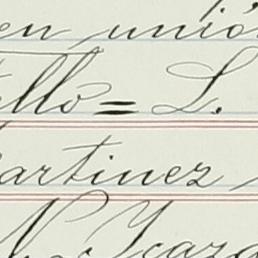 en unió
ello = L.
artinez
N. Ycaza